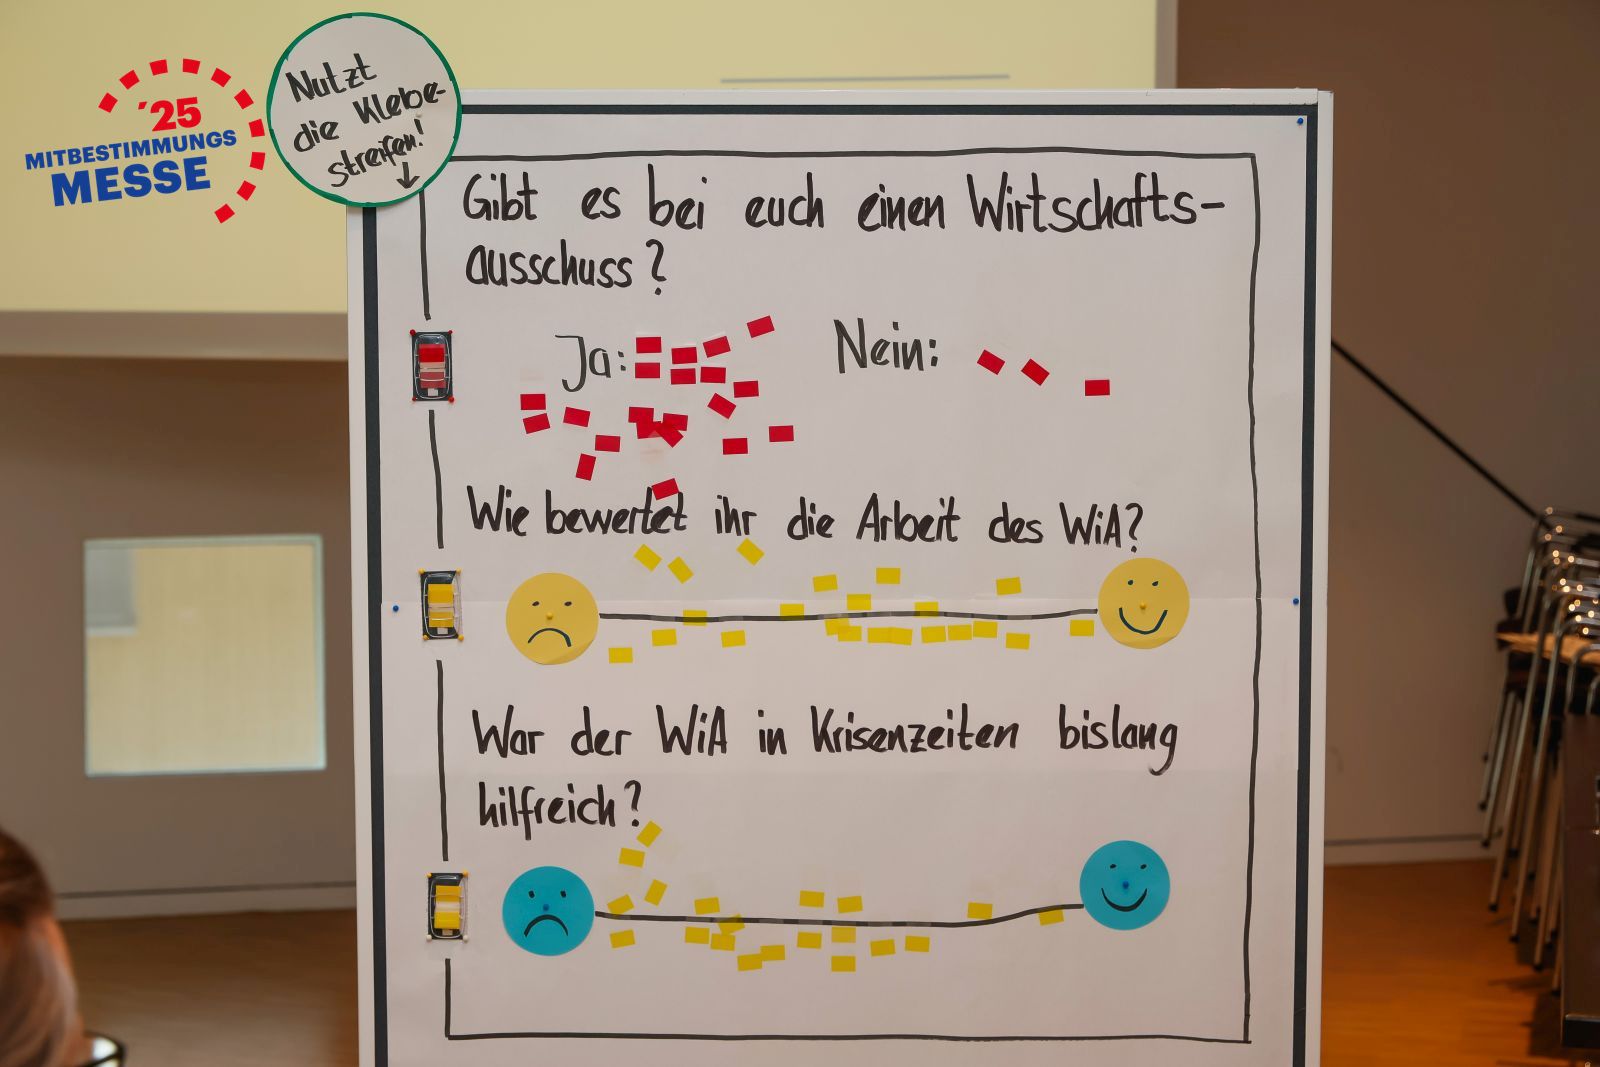 '25
MITBESTIMMUNGS
MESSE
Nutzt
die Klebe-
streifen!
Gibt es bei euch einen Wirtschafts-
ausschuss?
Ja:
Nein:
Wie bewertet ihr die Arbeit des WiA?
War der WiA in Krisenzeiten bislang
hilfreich?